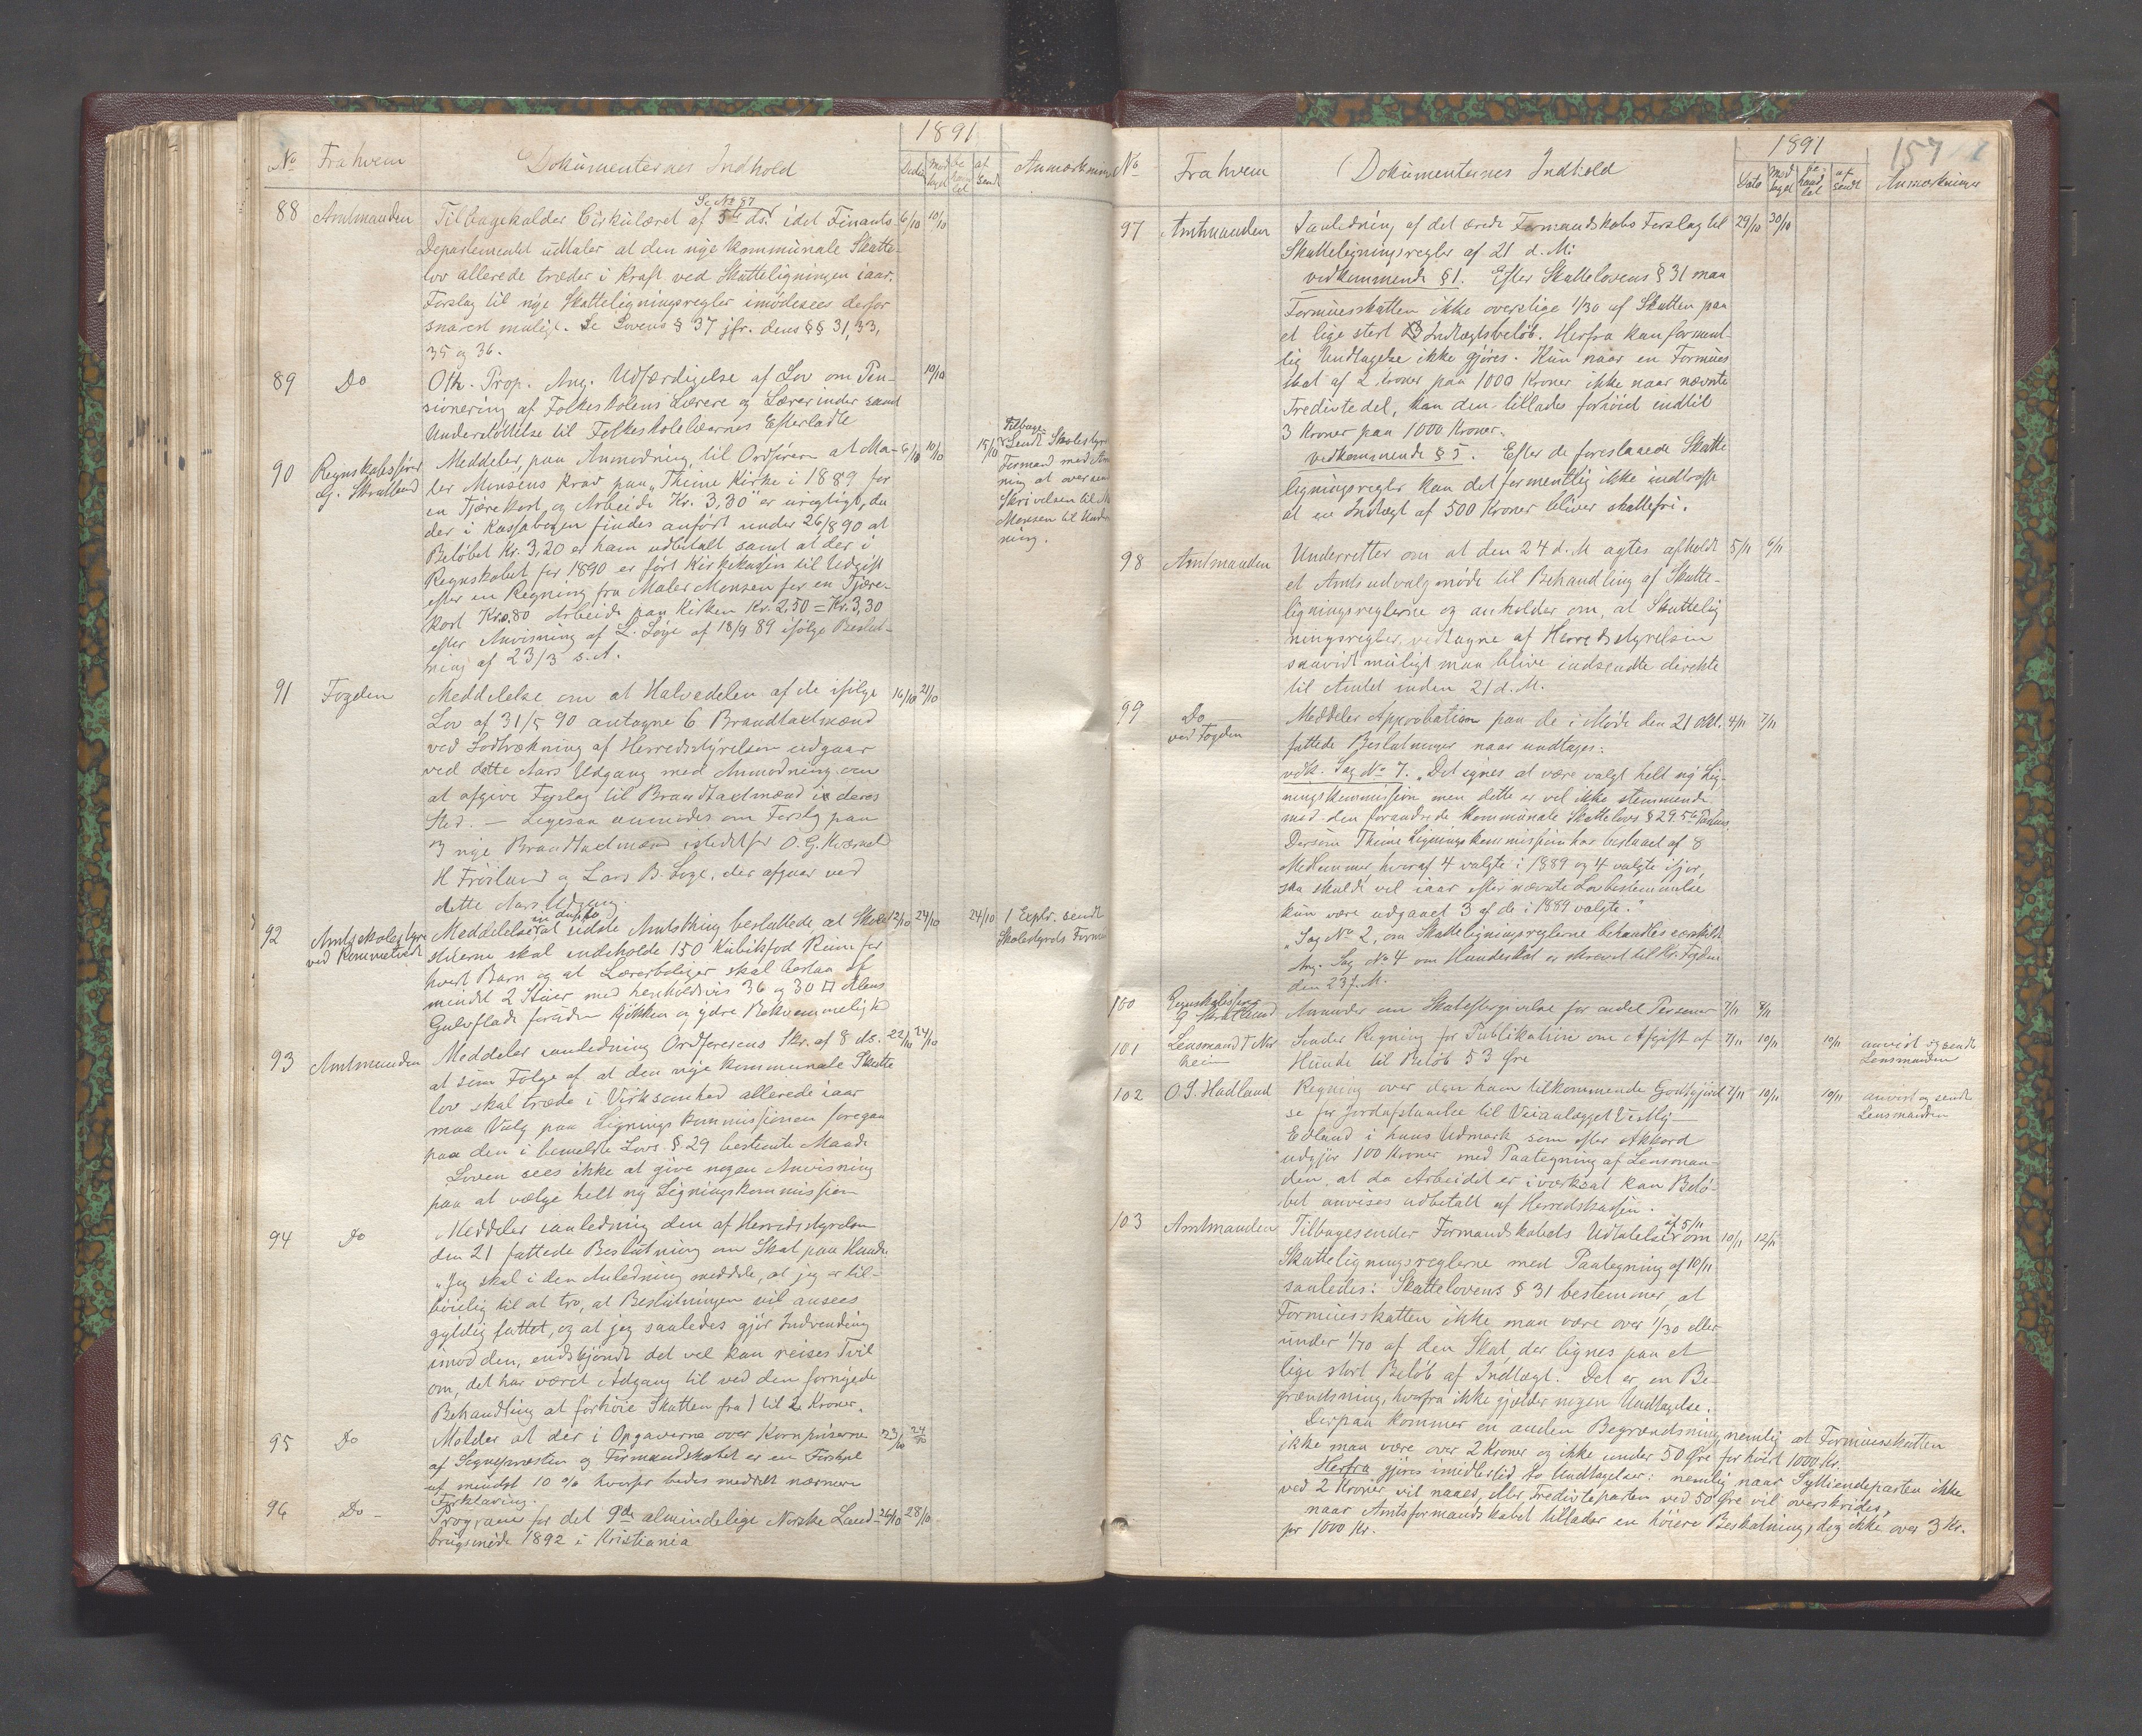 1891
No Fra hvem Dokumenternes Indhold Dato Mod taget be hand let af sendt Anmærkninger
Se No 87
88 Amtmanden Tilbagekalder Cirkulæret af 5te ds. idet Finants- 6/10 10/10
Departementet udtaler at den nye kommunale Skatte-
lov allerede træder i Kraft ved Skatteligningen iaar.
Forslag til nye Skatteligningsregler imødesees derfor
snarest muligt. Se Lovens § 37 jfr. dens §§ 31, 33,
35 og 36.
89 Do Oth. Prop. Ang. Udfærdigelse af Lov om Pen- 10/10
sionering af Folkeskolens Lærere og Lærerinder samt
Understøttelse til Folkeskolelærernes Efterladte
90 Regnskabsfører G. Skratland Meddeler paa Anmodning til Ordføreren at Ma- 6/10 10/10 15/10 Tilbage-
ler Monsens Krav paa „Thime Kirke i 1889 for Sendt Skolestyr
en Tjærekost og Arbeide Kr. 3,30" er urigtigt, da Formand med An
der i Kassabogen findes anført under 26/8 90 at ning at oversend
Beløbet Kr. 3,20 er ham udbetalt samt at der i Skrivelsen til M
Regnskabet for 1890 er ført Kirkekassen til Udgift Monsen til Under
efter en Regning fra Maler Monsen for en Tjære- ning.
kost Kr. 0.80 Arbeide paa Kirken Kr. 2,50 = Kr. 3,30
efter Anvisning af L. Løge af 18/9 89 ifølge Beslut-
ning af 23/3 s.A.
91 Fogden Meddelelse om at Halvedelen af de ifølge 16/10 21/10
Lov af 31/5 90 antagne 6 Brandtaxtmænd
ved Lodtrækning af Herredsstyrelsen udgaar
ved dette Aars Udgang med Anmodning om
at afgive Forslag til Brandtaxtmænd i deres
Sted. — Ligesaa anmodes om Forslg paa
3 nye Brandtaxtmænd istedetfor O. G. Kværnel
H Frøiland og Lars B. Loge, der afgaar ved
dette Aars Udgang.
in duplo
92 Amtsskolestyre ved Kommetvedt Meddelelse at sidste Amtsthing besluttede at Skole 12/10 24/10 24/10 1 Explr. sendt
stuerne skal indeholde 150 Kubikfod Rum for Skolestyrets Forman
hvert Barn og at Lærerboliger skal bestaa af
mindst 2 Stuer med henholdsvis 36 og 30 □ Alens
Gulvflade foruden Kjøkken og ydre Bekvemmelighed
93 Amtmanden Meddeler i anledning Ordførerens Skr. af 8 ds. 22/10 24/10
at som Følge af at den nye kommunale Skatte
lov skal træde i Virksomhed allerede iaar
maa Valg paa Ligningskommissionen foregaa
paa den i bemeldte Lovs § 29 bestemte Maade
Loven sees ikke at give nogen Anvisning
paa at vælge helt ny Ligningskommission
94 Do Meddeler i anledning den af Herredsstyrelsen
den 21 fattede Beslutning om Skat paa Hunde
„Jeg skal i den Anledning meddele, at jeg er til-
bøielig til at tro, at Beslutningen vil ansees
gyldig fattet, og at jeg saaledes gjør Indvending
imod den, endskjøndt det vel kan reises Tvil
om, det har været Adgang til ved den fornyede
Behandling at forhøie Skatten fra 1 til 2 Kroner.
95 Do Melder at der i Opgaverne over Kornpriserne 23/10 24/10
af Sognepræsten og Formandskabet er en Forskjel
af mindst 10 % hvorfor bedes meddelt nærmere
Forklaring.
96 Do Program for det 9de almindelige Norske Land- 26/10 28/10
brugsmøde 1892 i Kristiania
1891 157
No Fra hvem Dokumenternes Indhold Dato Mod taget be- hand let af sendt Anmærkninger
97 Amtmanden I anledning af det ærede Formandskabs Forslag til 29/10 30/10
Skatteligningsregler af 21 d. M:
vedkommende § 1. Efter Skattelovens § 31 maa
Formuesskatten ikke overstige 1/30 af Skatten paa
et lige stort Indtægtsbeløb. Herfra kan forment-
lig Undtagelse ikke gjøres. Kun naar en Formues
skat af 2 Kroner paa 1000 Kroner ikke naar nævnte
Tredivtedel, kan den tillades forhøiet indtil
3 Kroner paa 1000 Kroner.
vedkommende § 5. Efter de foreslaaede Skatte
ligningsregler kan det formentlig ikke indtræffe
at en Indtægt af 500 Kroner bliver skattefri.
98 Amtmanden Underretter om at den 24 d. M agtes afholdt 5/11 6/11
et Amtsudvalgmøde til Behandling af Skatte-
ligningsreglerne og anholder om, at Skattelig
ningsregler, vedtagne af Herredsstyrelsen
saavidt muligt maa blive indsendte direkte
til Amtet inden 21 d. M.
99 Do ved Fogden Meddeler Approbation paa de i Møde den 21 Okt. 4/11 7/11
fattede Beslutninger naar undtages:
vdk. Sag No 7. „Det synes at være valgt helt ny Lig-
ningskommission men dette er vel ikke stemmende
med den forandrede kommunale Skattelovs § 29. 5te Passus.
Dersom Thime Ligningskommission har bestaaet af 8
Medlemmer, hvoraf 4 valgte i 1889 og 4 valgte ifjor,
saa skulde vel iaar efter nævnte Lovbestemmelse
kun være udgaaet 3 af de i 1889 valgte."
„Sag No 2, om Skatteligningsreglerne behandles særskilt
Ang. Sag No 4 om Hundeskat er skrevet til Hr. Fogden
den 23 f.M.
100 Regnskabsfører G Skratland Anmoder om Skateftergivelse for endel Personer 7/11 8/11
101 Lensmand T Nærheim Sender Regning for Publikation om Afgift af 7/11 10/11 10/11 anvist og sendt
Hunde til Beløb 53 Øre Lensmanden
102 O. S. Hadland Regning over den ham tilkommende Godtgjørel 7/11 10/11 10/11 anvist og sendt
se for Jordafstaaelse til Veianlægget Vestly— Lensmanden
Edland i hans Udmark som efter Akkord
udgjør 100 Kroner med Paategning af Lensman-
den, at da Arbeidet er iverksat kan Belø-
bet anvises udbetalt af Herredskassen.
af 5/11
103 Amtmanden Tilbagesender Formandskabets Udtalelse om 10/11 12/11
Skatteligningsreglerne med Paategning af 10/11
saaledes: Skattelovens § 31 bestemmer, at
Formuesskatten ikke maa være over 1/30 eller
under 1/70 af den Skat, der lignes paa et
lige stort Beløb af Indtægt. Det er en Be-
grændsning, hvorfra ikke gjælder nogen Undtagelse.
Derpaa kommer en anden Begrændsning, nemlig at Formuesskatten
ikke maa være over 2 Kroner og ikke under 50 Øre for hvert 1000 Kr.
Herfra gjøres imidlertid to Undtagelser: nemlig naar Syttiendeparten ikke
ved 2 Kroner vil naaes, eller Tredivteparten ved 50 Øre vil overskrides,
naar Amtsformandskabet tillader en høiere Beskatning, dog ikke over 3 Kr.
pr 1000 Kr.